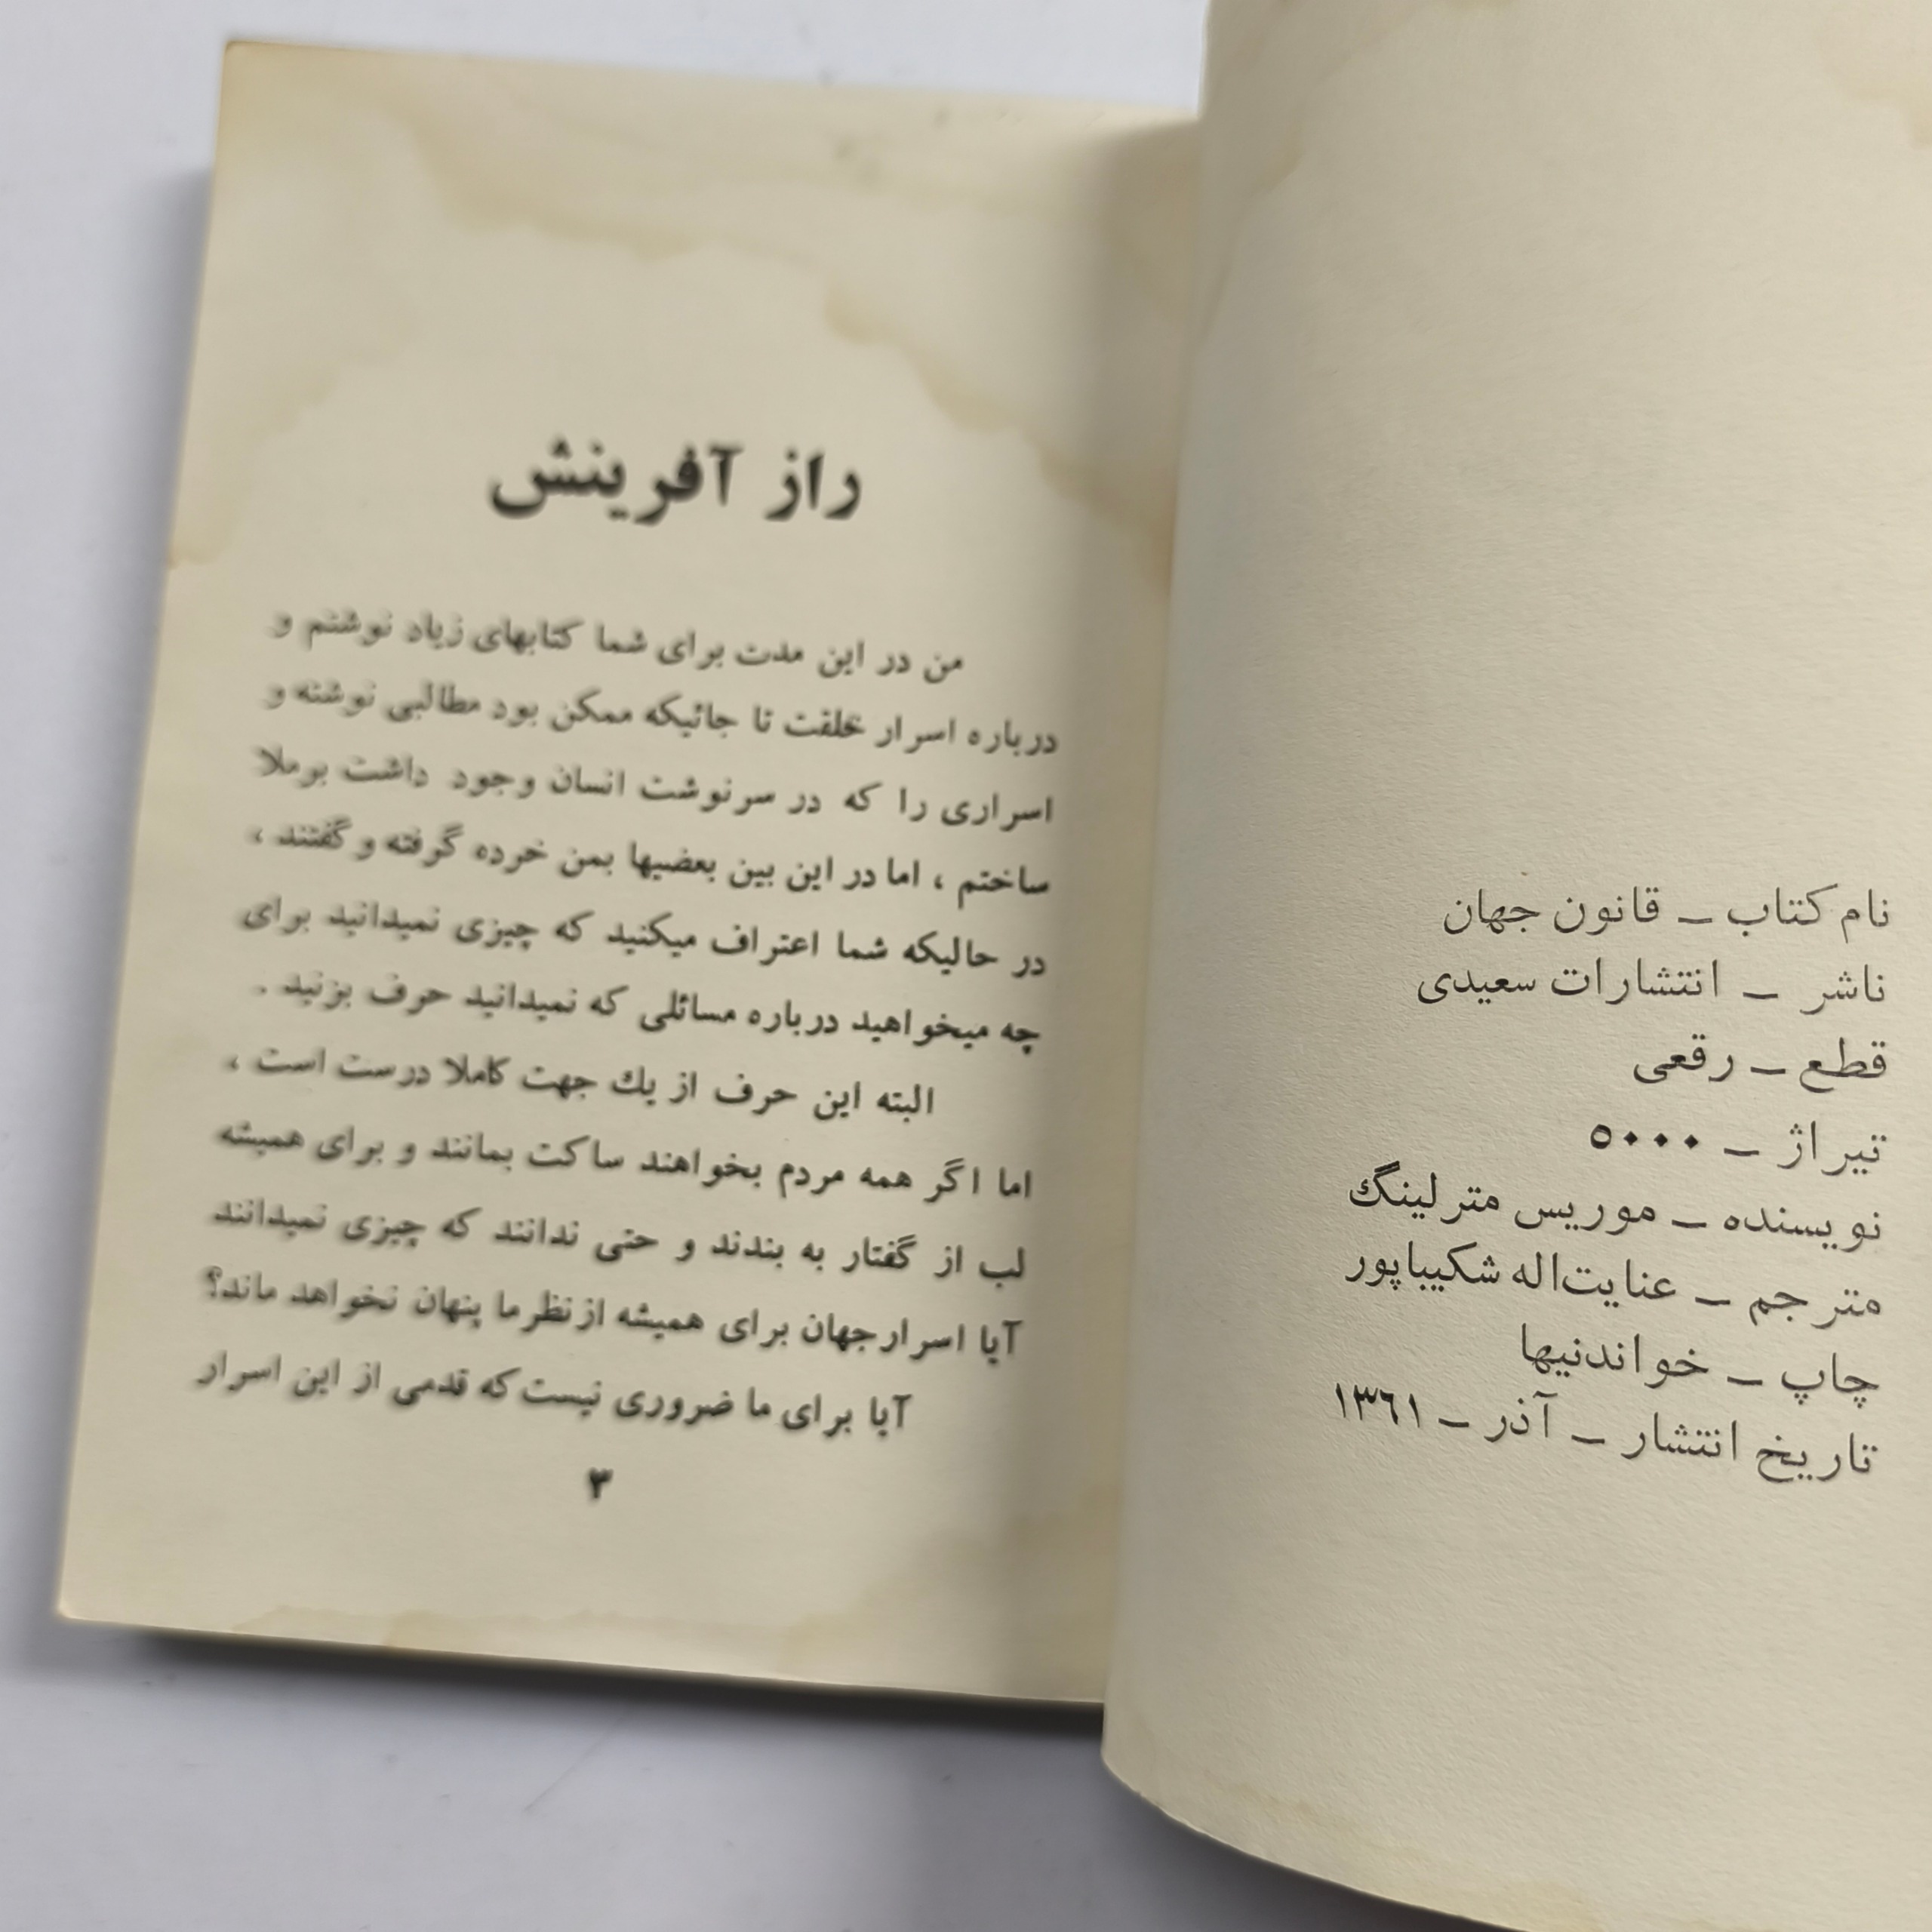 نام کتاب ـ قانون جهان
ناشر ـ انتشارات سعیدی
قطع ـ رقعی
تیراژ ـ ۵۰۰۰
نویسنده ـ موریس مترلینگ
مترجم ـ عنایت‌اله شکیباپور
چاپ ـ خواندنیها
تاریخ انتشار ـ آذر ـ ۱۳۶۱
راز آفرینش
من در این مدت برای شما کتابهای زیاد نوشتم و
درباره اسرار خلقت تا جائیکه ممکن بود مطالبی نوشته و
اسراری را که در سرنوشت انسان وجود داشت برملا
ساختم ، اما در این بین بعضیها بمن خرده گرفته و گفتند ،
در حالیکه شما اعتراف میکنید که چیزی نمیدانید برای
چه میخواهید درباره مسائلی که نمیدانید حرف بزنید .
البته این حرف از یك جهت کاملا درست است ،
اما اگر همه مردم بخواهند ساکت بمانند و برای همیشه
لب از گفتار به بندند و حتی ندانند که چیزی نمیدانند
آیا اسرار جهان برای همیشه از نظر ما پنهان نخواهد ماند؟
آیا برای ما ضروری نیست که قدمی از این اسرار
۳